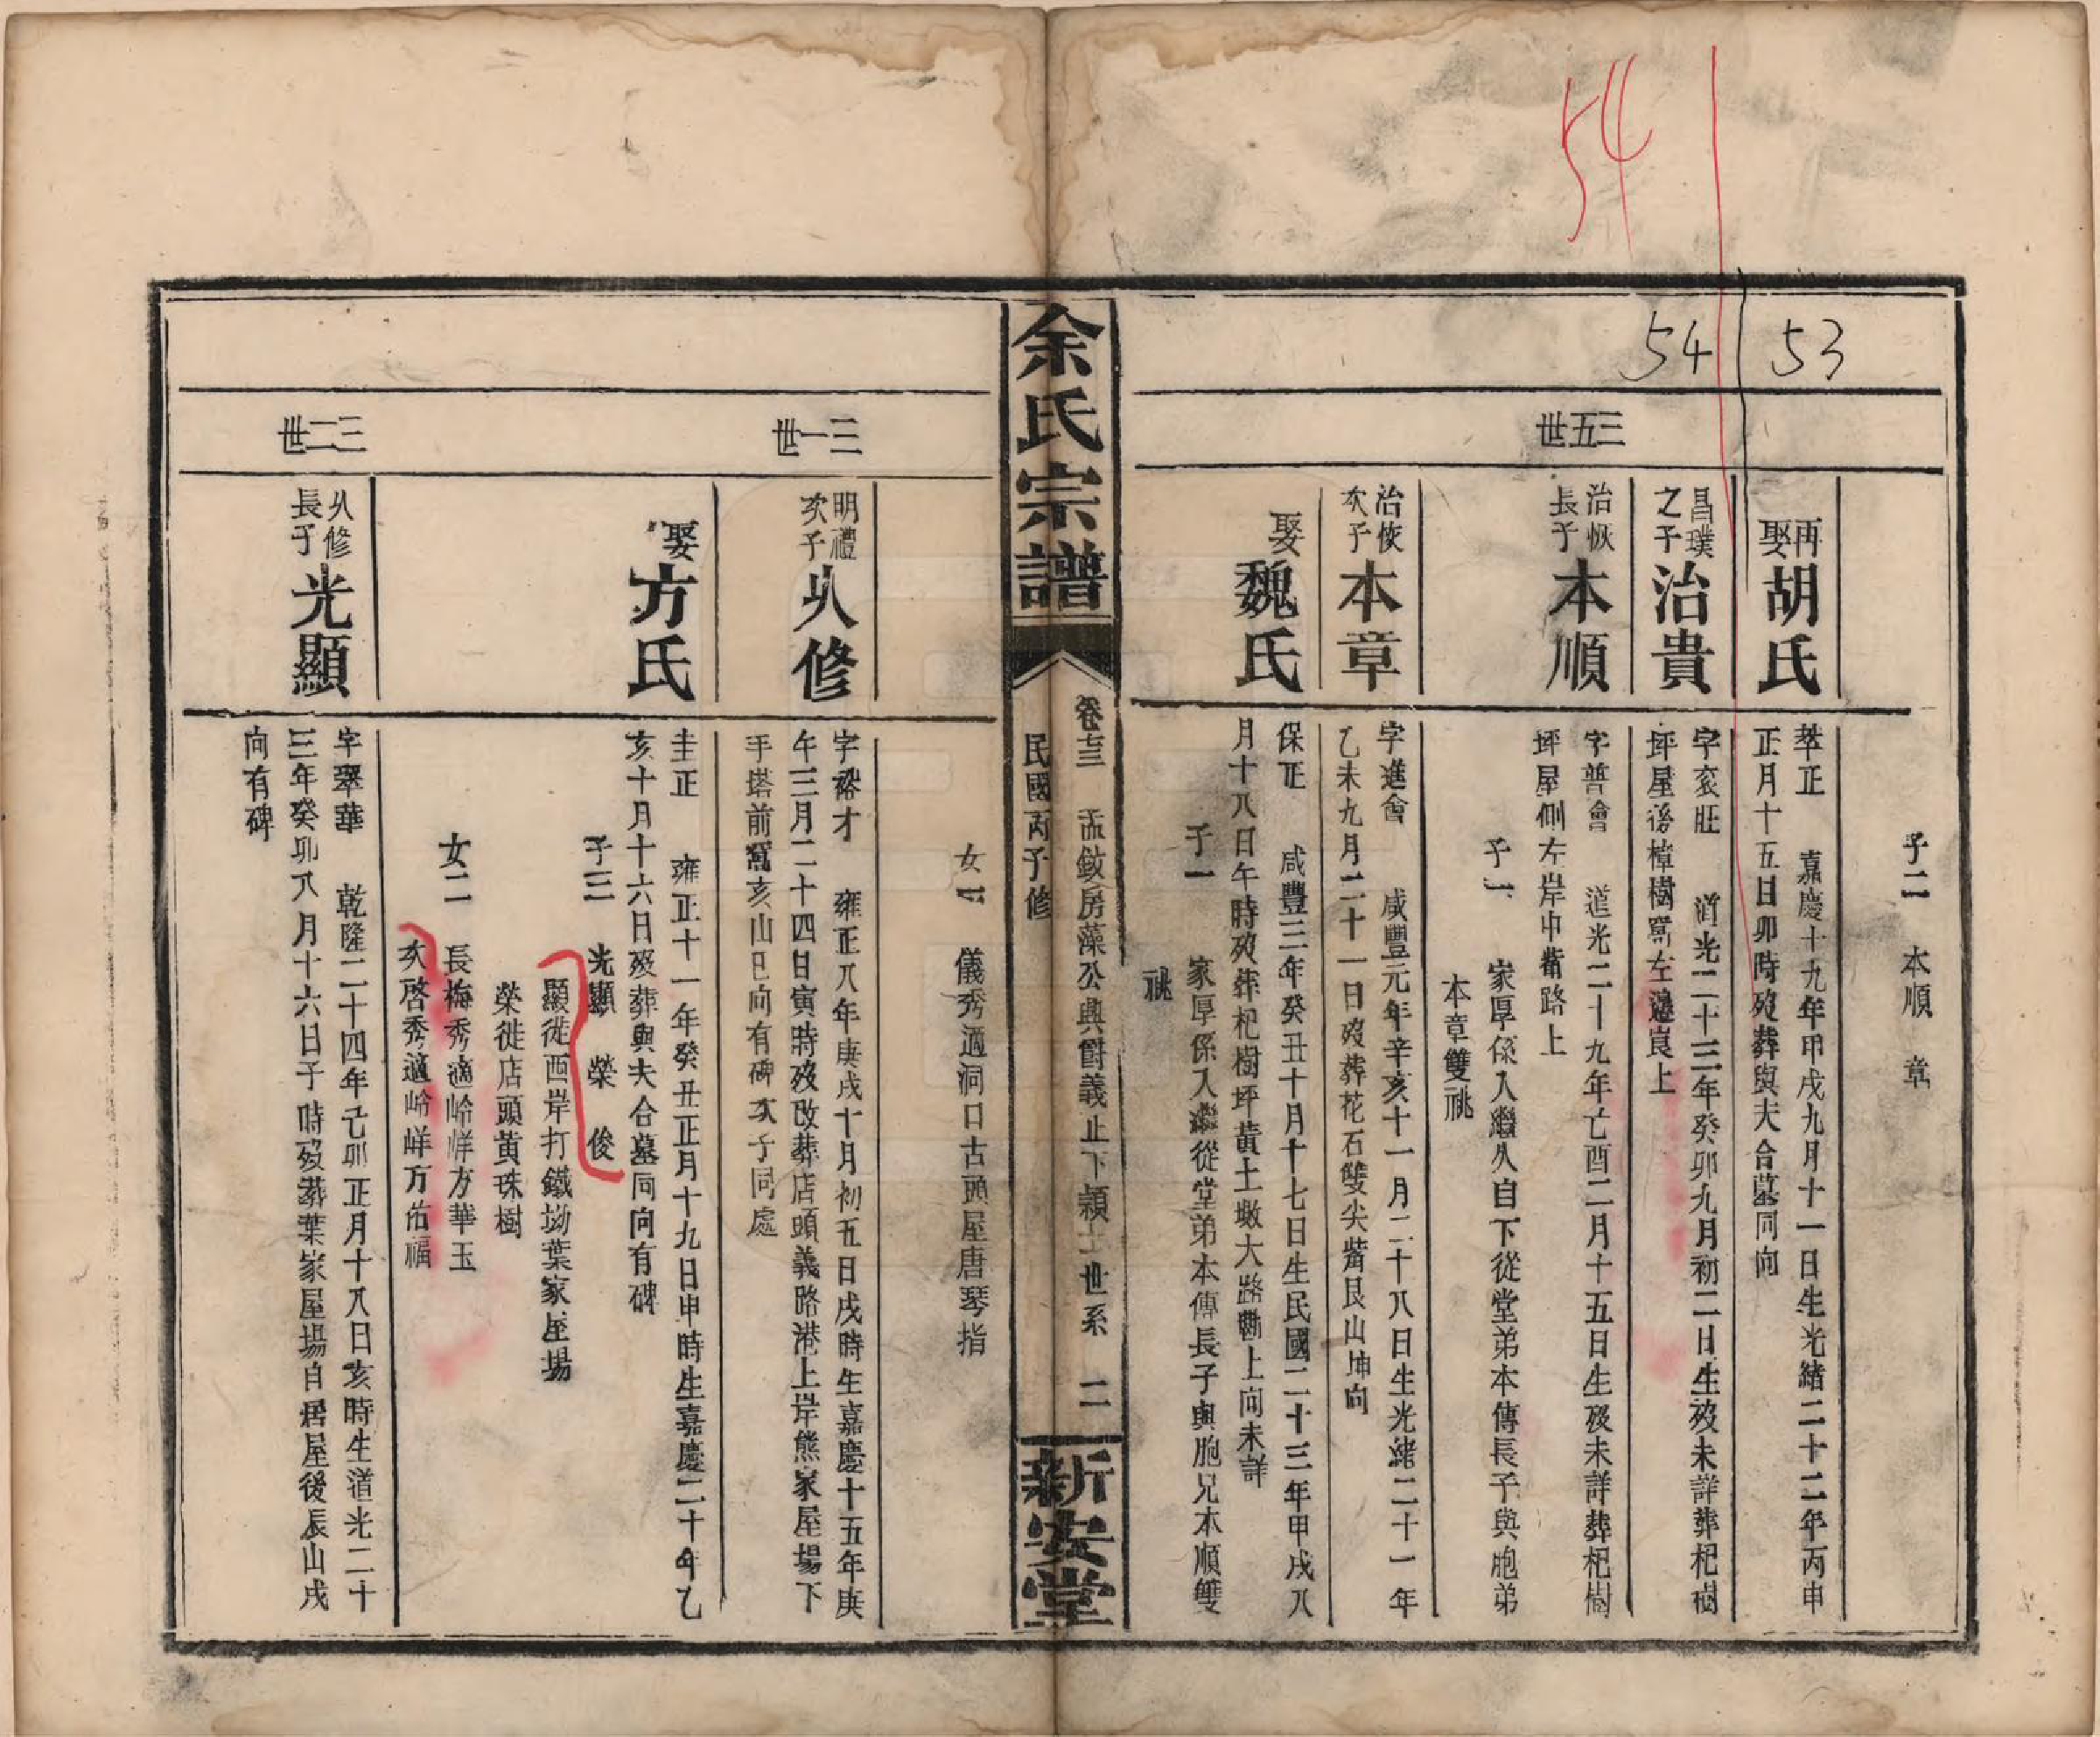 54
53
54
三五世
子二　本順　章
再娶胡氏
莘正　嘉慶十九年甲戌九月十一日生光緒二十二年丙申
正月十五日卯時歿葬與夫合墓同向
昌璞之子治貴
字袞旺　道光二十三年癸卯九月初二日生歿未詳葬杞樹
坪屋後樟樹窩左邊崀上
治恢長子本順
字普會　道光二十九年己酉二月十五日生歿未詳葬杞樹
坪屋側左岸中嘴路上
子一　家厚係入繼久自下從堂弟本傳長子與胞弟
本章雙祧
治恢次子本章
字進會　咸豐元年辛亥十一月二十八日生光緒二十一年
乙未九月二十一日歿葬花石雙尖嘴艮山坤向
娶魏氏
保正　咸豐三年癸丑十月十七日生民國二十三年甲戌八
月十八日午時歿葬杞樹坪黃土墩大路勘上向未詳
子一　家厚係入繼從堂弟本傳長子與胞兄本順雙
祧
余氏宗譜
卷三　孟敘房藻公與爵義止下穎士世系　二
民國丙子修
新安堂
三一世
三二世
女一　儀秀適洞口古頭屋唐琴指
明禮次子乆修
字裕才　雍正八年庚戌十月初五日戌時生嘉慶十五年庚
午三月二十四日寅時歿改葬店頭義路港上岸熊家屋場下
手塔前窩亥山巳向有碑次子同處
娶方氏
圭正　雍正十一年癸丑正月十九日申時生嘉慶二十年乙
亥十月十六日歿葬與夫合墓同向有碑
子三　光顯　榮　俊
顯徙西岸打鐵坳葉家屋場
榮徙店頭黃珠樹
女二　長梅秀適岭峰方華玉
次啓秀適岭峰方佑福
乆修長子光顯
字翠華　乾隆二十四年己卯正月十八日亥時生道光二十
三年癸卯八月十六日子時歿葬葉家屋場自居屋後辰山戌
向有碑